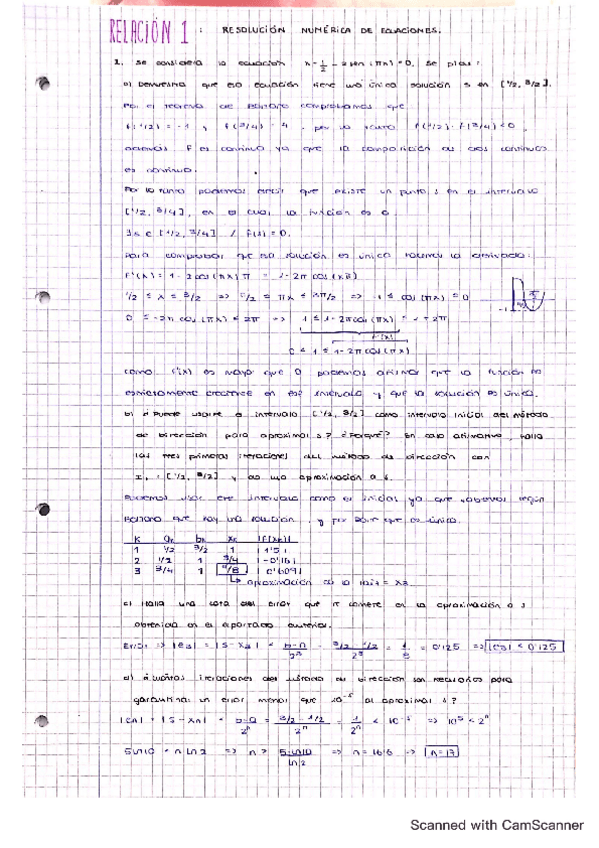 RELACIÓN 1 : RESOLUCIÓN NUMÉRICA DE ECUACIONES.
1. Se considera la ecuación x - 1/2 - 2 sen (πx) = 0. Se pide:
a) Demuestra que esa ecuación tiene una única solución s en [1/2, 3/2].
Por el teorema de Bolzano comprobamos que
además f es continua ya que la composición de dos continuas
es continua.
Por lo tanto podemos que existe un punto s en el intervalo
[1/2, 3/4], en el cual la función es 0
∃ s ∈ [1/2, 3/4] / f(s) = 0.
Para comprobar que esa solución es única hacemos la derivada:
f'(x) = 1 - 2 cos (πx) π = 1 - 2π cos (xπ)
1/2 ≤ x ≤ 3/2 => π/2 ≤ πx ≤ 3π/2 => -1 ≤ cos (πx) ≤ 0
0 ≤ -2π cos (πx) ≤ 2π => 1 ≤ 1 - 2π cos (πx) ≤ 1 + 2π
f'(x)
0 ≤ 1 ≤ 1 - 2π cos (πx)
Como f'(x) es mayor que 0 podemos afirmar que la función es
estrictamente creciente en ese intervalo y que la solución es única.
b) ¿Puede usarse el intervalo [1/2, 3/2] como intervalo inicial del método
de bisección para aproximar s? ¿Por qué? En caso afirmativo, halla
las tres primeras iteraciones del método de bisección con
[1/2, 3/2] y da una aproximación a s.
Podemos usar ese intervalo como el inicial ya que sabemos según
Bolzano que hay una solución, y que es única.
k ak bk xk |f(xk)|
1 1/2 3/2 1 |1'5|
2 1/2 1 3/4 |-0'161|
3 3/4 1 7/8 |0'609|
aproximación de la raíz = x3
c) Halla una cota del error que se comete en la aproximación a s
obtenida en el apartado anterior.
Error => |e3| = |s - x3| < b-a/2^n = 3/2 - 1/2 / 2^3 = 1/8 = 0'125 => |e3| < 0'125
d) ¿Cuántas iteraciones del método de bisección son necesarias para
garantizar un error menor que 10^-5 al aproximar s?
|en| = |s - xn| < b-a/2^n = 3/2 - 1/2 / 2^n = 1/2^n < 10^-5 => 10^5 < 2^n
5 ln 10 < n ln 2 => n > 5·ln10 / ln 2 => n = 16'6 => n = 17
Scanned with CamScanner